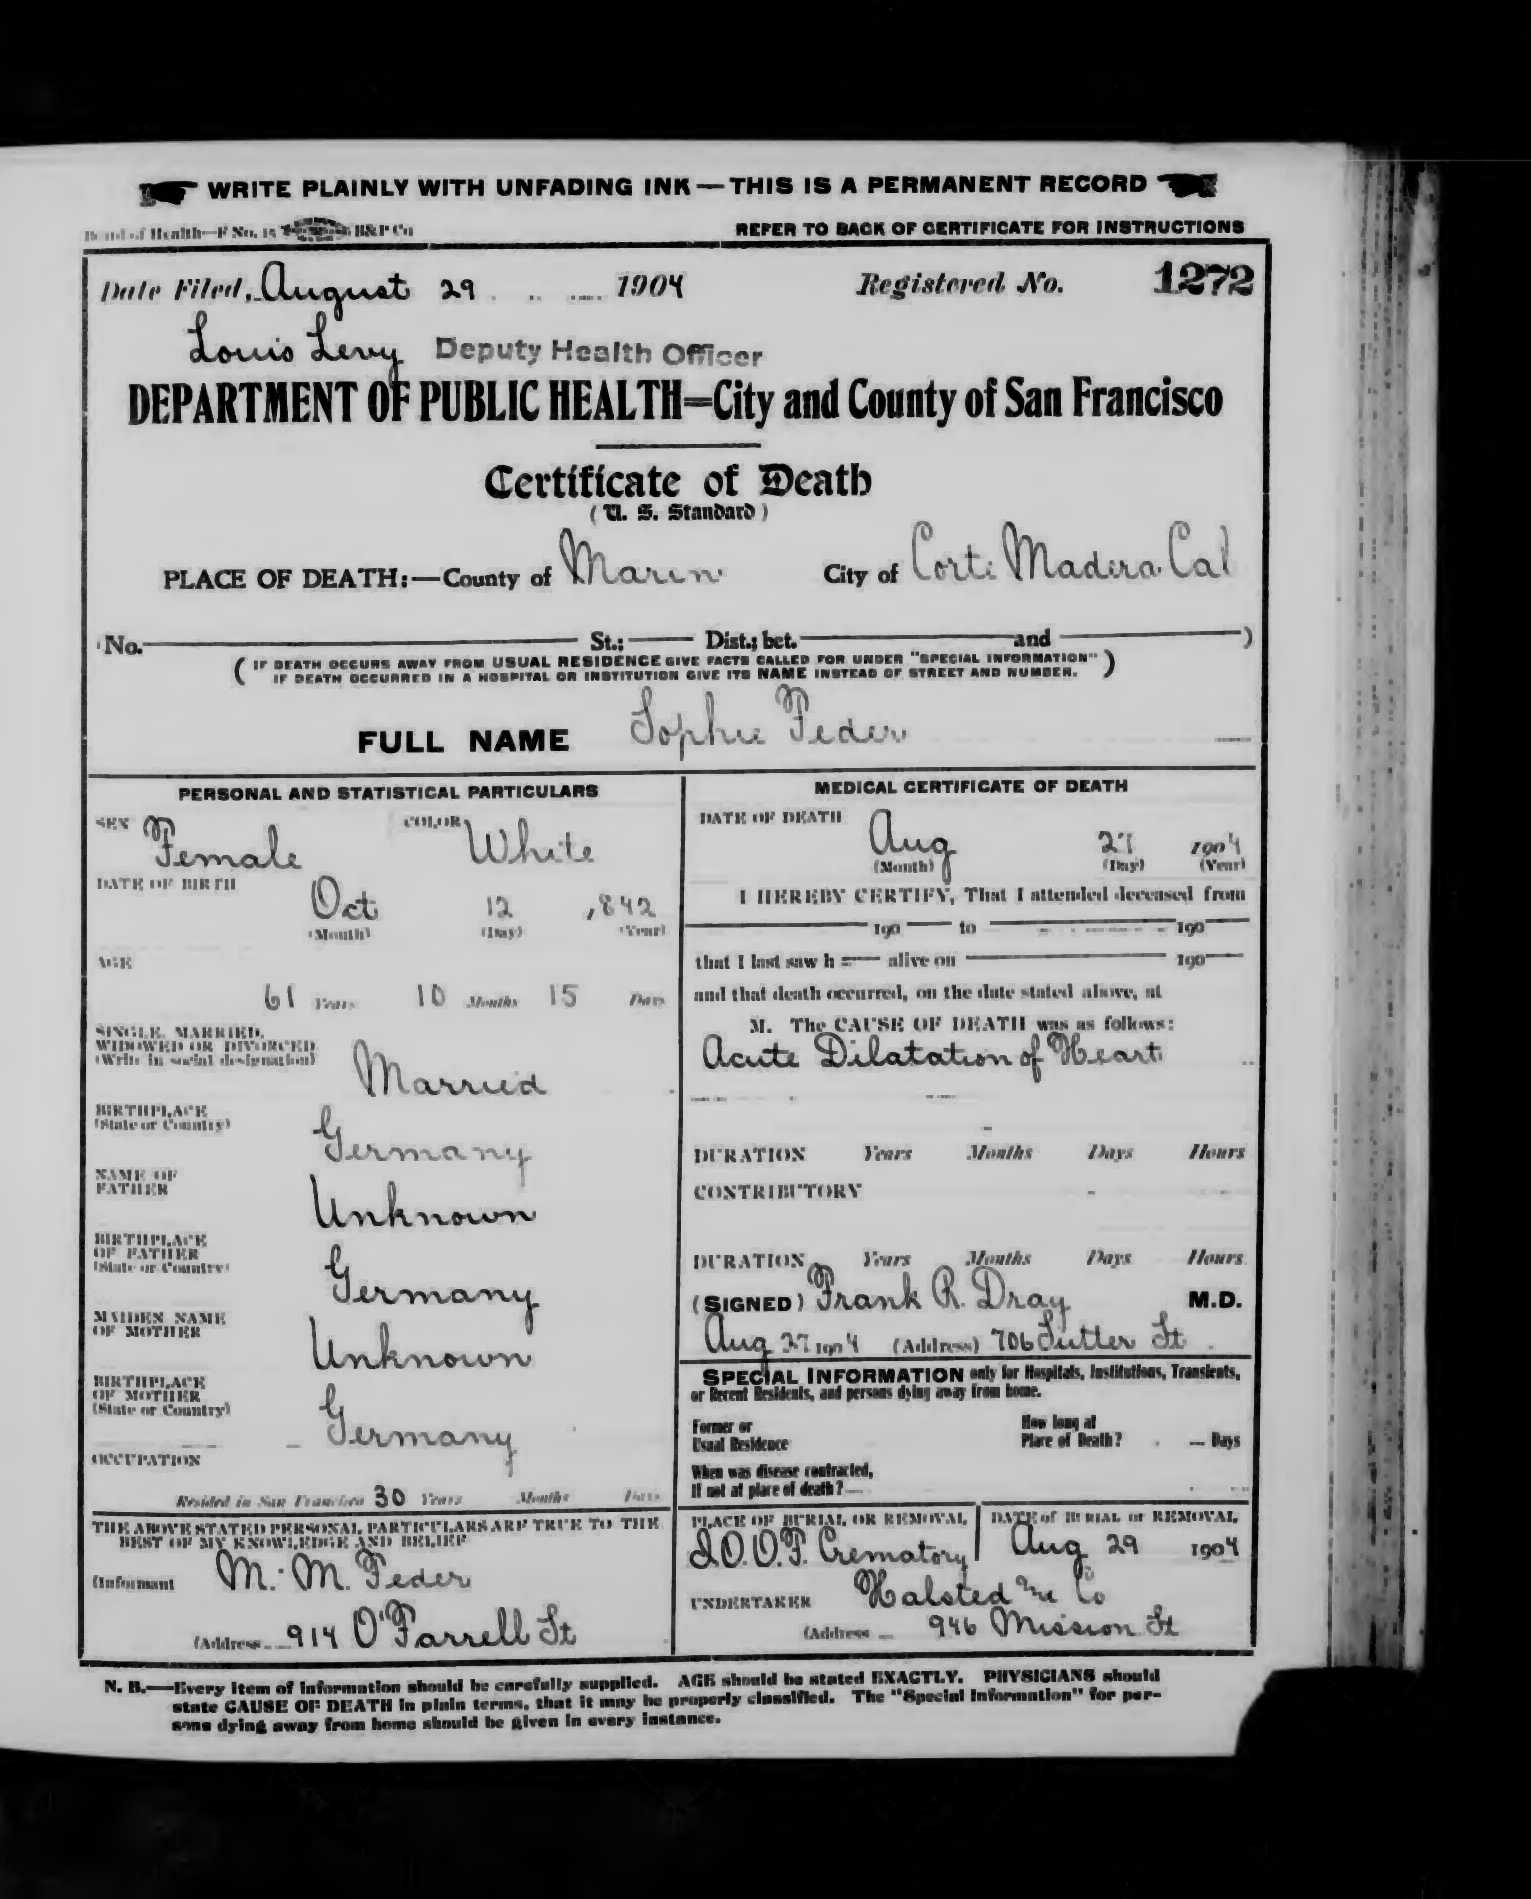 WRITE PLAINLY WITH UNFADING INK — THIS IS A PERMANENT RECORD
Board of Health—F No. 15 B&P Co
REFER TO BACK OF CERTIFICATE FOR INSTRUCTIONS
Date Filed, August 29 1904 Registered No. 1272
Louis Levy Deputy Health Officer
DEPARTMENT OF PUBLIC HEALTH=City and County of San Francisco
Certificate of Death
(U. S. Standard)
PLACE OF DEATH:—County of Marin City of Corte Madera Cal
No. St.; Dist.; bet. and )
( IF DEATH OCCURS AWAY FROM USUAL RESIDENCE GIVE FACTS CALLED FOR UNDER "SPECIAL INFORMATION" )
IF DEATH OCCURRED IN A HOSPITAL OR INSTITUTION GIVE ITS NAME INSTEAD OF STREET AND NUMBER.
FULL NAME Sophie Feder
PERSONAL AND STATISTICAL PARTICULARS
SEX Female COLOR White
DATE OF BIRTH
Oct 12 1842
(Month) (Day) (Year)
AGE
61 Years 10 Months 15 Days
SINGLE, MARRIED,
WIDOWED OR DIVORCED
(Write in social designation) Married
BIRTHPLACE
(State or Country) Germany
NAME OF
FATHER Unknown
BIRTHPLACE
OF FATHER
(State or Country) Germany
MAIDEN NAME
OF MOTHER Unknown
BIRTHPLACE
OF MOTHER
(State or Country) Germany
OCCUPATION
Resided in San Francisco 30 Years Months Days
THE ABOVE STATED PERSONAL PARTICULARS ARE TRUE TO THE
BEST OF MY KNOWLEDGE AND BELIEF
(Informant M. M. Feder
(Address 914 O'Farrell St
MEDICAL CERTIFICATE OF DEATH
DATE OF DEATH
Aug 27 1904
(Month) (Day) (Year)
I HEREBY CERTIFY, That I attended deceased from
190 to 190
that I last saw h alive on 190
and that death occurred, on the date stated above, at
M. The CAUSE OF DEATH was as follows:
Acute Dilatation of Heart
DURATION Years Months Days Hours
CONTRIBUTORY
DURATION Years Months Days Hours
(SIGNED) Frank R. Dray M.D.
Aug 27 1904 (Address) 706 Sutter St
SPECIAL INFORMATION only for Hospitals, Institutions, Transients,
or Recent Residents, and persons dying away from home.
Former or
Usual Residence
How long at
Place of Death? Days
When was disease contracted,
If not at place of death?
PLACE OF BURIAL OR REMOVAL
I.O.O.F. Crematory
DATE of BURIAL or REMOVAL
Aug 29 1904
UNDERTAKER Halsted & Co
(Address 946 Mission St
N. B.—Every item of information should be carefully supplied. AGE should be stated EXACTLY. PHYSICIANS should
state CAUSE OF DEATH in plain terms, that it may be properly classified. The "Special Information" for per-
sons dying away from home should be given in every instance.